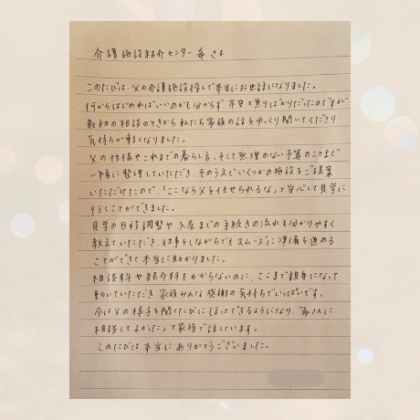 介護施設紹介センター 希さま
このたびは、父の介護施設探しで本当にお世話になりました。
何からはじめればいいのかも分からず 不安と焦りばかりだったのですが
最初の相談のときから私たち家族の話をゆっくり聞いてくださり
気持ちが軽くなりました。
父の性格やこれまでの暮らし方、そして無理のない予算のことまで
一緒に整理していただき、そのうえでいくつかの施設をご提案
いただけたので、「ここなら父を任せられるな」と安心して見学に
行くことができました。
見学の日程調整や 入居までの手続きの流れも分かりやすく
教えていただき、仕事をしながらでもスムーズに準備を進める
ことができて本当に助かりました。
相談料や紹介料もかからないのに、ここまで親身になって
動いていただき 家族みんな感謝の気持ちでいっぱいです。
今は父の様子を聞くたびにほっとできるようになり、「希さんに
相談してよかった」と家族で話しています。
このたびは本当にありがとうございました。